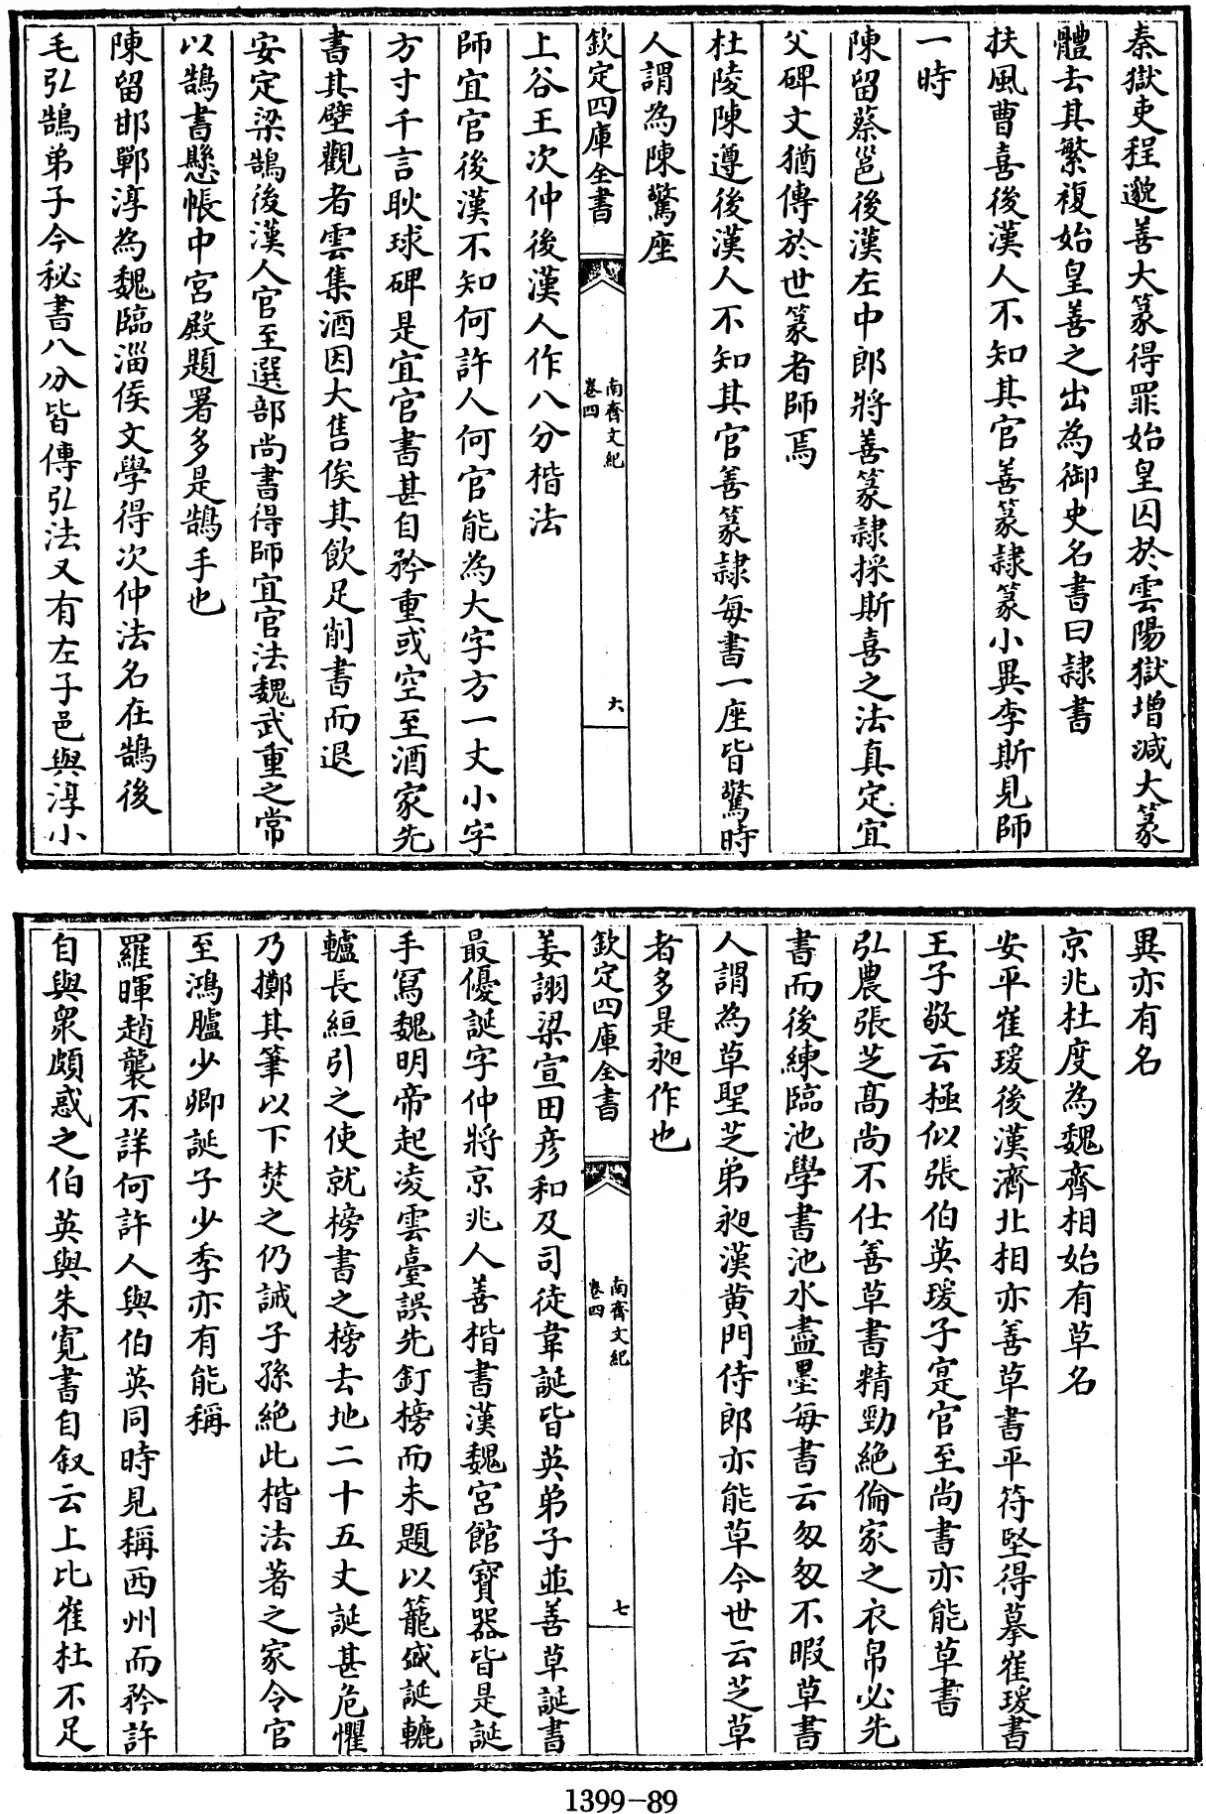 秦獄吏程邈善大篆得罪始皇囚於雲陽獄增減大篆
體去其繁複始皇善之出為御史名書曰隷書
扶風曹喜後漢人不知其官善篆隷篆小異李斯見師
一時
陳留蔡邕後漢左中郎將善篆隷採斯喜之法真定宜
父碑文猶傳於世篆者師焉
杜陵陳遵後漢人不知其官善篆隷每書一座皆驚時
人謂為陳驚座
欽定四庫全書
南齊文紀
卷四
六
上谷王次仲後漢人作八分楷法
師宜官後漢不知何許人何官能為大字方一丈小字
方寸千言耿球碑是宜官書甚自矜重或空至酒家先
書其壁觀者雲集酒因大售俟其飲足削書而退
安定梁鵠後漢人官至選部尚書得師宜官法魏武重之常
以鵠書懸帳中宮殿題署多是鵠手也
陳留邯鄲淳為魏臨淄侯文學得次仲法名在鵠後
毛弘鵠弟子今秘書八分皆傳弘法又有左子邑與淳小
異亦有名
京兆杜度為魏齊相始有草名
安平崔瑗後漢濟北相亦善草書平符堅得摹崔瑗書
王子敬云極似張伯英瑗子寔官至尚書亦能草書
弘農張芝髙尚不仕善草書精勁絶倫家之衣帛必先
書而後練臨池學書池水盡墨每書云匆匆不暇草書
人謂為草聖芝弟昶漢黄門侍郎亦能草今世云芝草
者多是昶作也
欽定四庫全書
南齊文紀
卷四
七
姜詡梁宣田彦和及司徒韋誕皆英弟子並善草誕書
最優誕字仲將京兆人善楷書漢魏宮館寶器皆是誕
手冩魏明帝起凌雲臺誤先釘榜而未題以籠盛誕轆
轤長絙引之使就榜書之榜去地二十五丈誕甚危懼
乃擲其筆以下焚之仍誡子孫絶此楷法著之家令官
至鴻臚少卿誕子少季亦有能稱
羅暉趙襲不詳何許人與伯英同時見稱西州而矜許
自與衆頗惑之伯英與朱寛書自叙云上比崔杜不足
1399-89